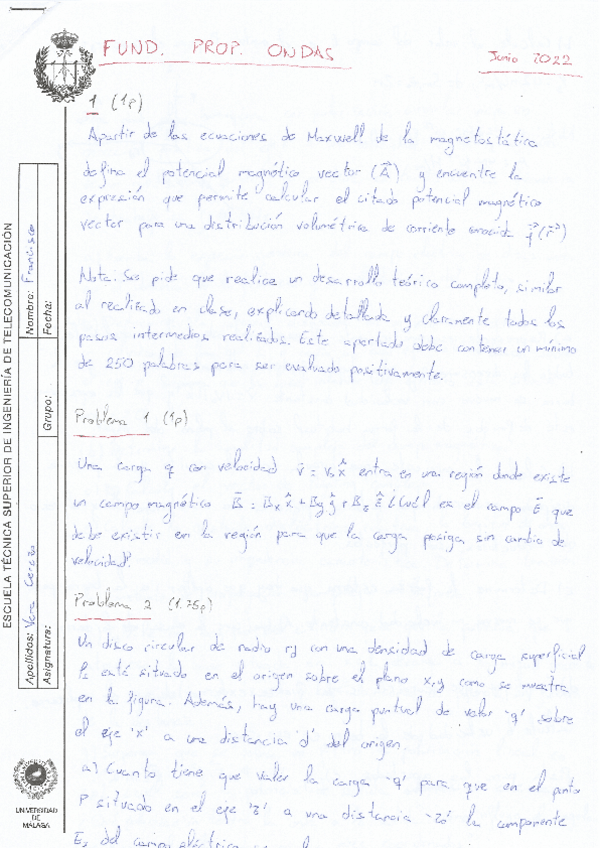 FUND. PROP. ONDAS
Junio 2022
1 (1p)
Apartir de las ecuaciones de Maxwell de la magnetostática
defina el potencial magnético vector (A⃗) y encuentre la
expresión que permite calcular el citado potencial magnético
vector para una distribución volumétrica de corriente conocida j⃗(r⃗')
Nota: Se pide que realice un desarrollo teórico completo, similar
al realizado en clase, explicando detallada y claramente todos los
pasos intermedios realizados. Este apartado debe contener un mínimo
de 250 palabras para ser evaluado positivamente.
Problema 1 (1p)
Una carga q con velocidad v̄ = v₀ x̂ entra en una región donde existe
un campo magnético B̄ = Bx x̂ + By ŷ + Bz ẑ ¿Cuál es el campo Ē que
debe existir en la región para que la carga prosiga sin cambio de
velocidad?
Problema 2 (1.75p)
Un disco circular de radio con una densidad de carga superficial
ρs está situado en el origen sobre el plano x,y como se muestra
en la figura. Además, hay una carga puntual de valor 'q' sobre
el eje 'x' a una distancia 'd' del origen.
a) Cuanto tiene que valer la carga 'q' para que en el punto
P situado en el eje 'z' a una distancia 'z₀' la componente
del campo eléctrico
ESCUELA TÉCNICA SUPERIOR DE INGENIERÍA DE TELECOMUNICACIÓN
Apellidos: Vera
Nombre: Francisco
Asignatura:
Grupo:
Fecha:
UNIVERSIDAD
DE
MÁLAGA